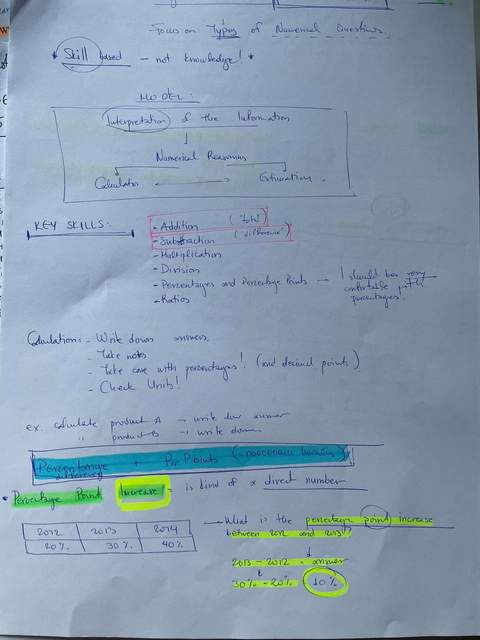 Focus on Types of Numerical Questions.
* Skill based - not knowledge! *
MODEL:
Interpretation of the Information
Numerical Reasoning
Calculator Estimation.
KEY SKILLS:
- Addition ("total")
- Subtraction ("difference")
- Multiplication
- Division
- Percentages and Percentage Points - I should be very
comfortable with
percentages!
- Ratios
Calculations: - Write down answers.
- Take notes
- Take care with percentages! (and decimal points)
- Check Units!
ex. calculate product A → write down answer
" product B → write down
Percentage + Per Points
difference
• Percentage Point Increase: is kind of a direct number
2012 2013 2014
20% 30% 40%
What is the percentage point increase
between 2012 and 2013?
2013 - 2012 = answer
30% - 20% = 10%